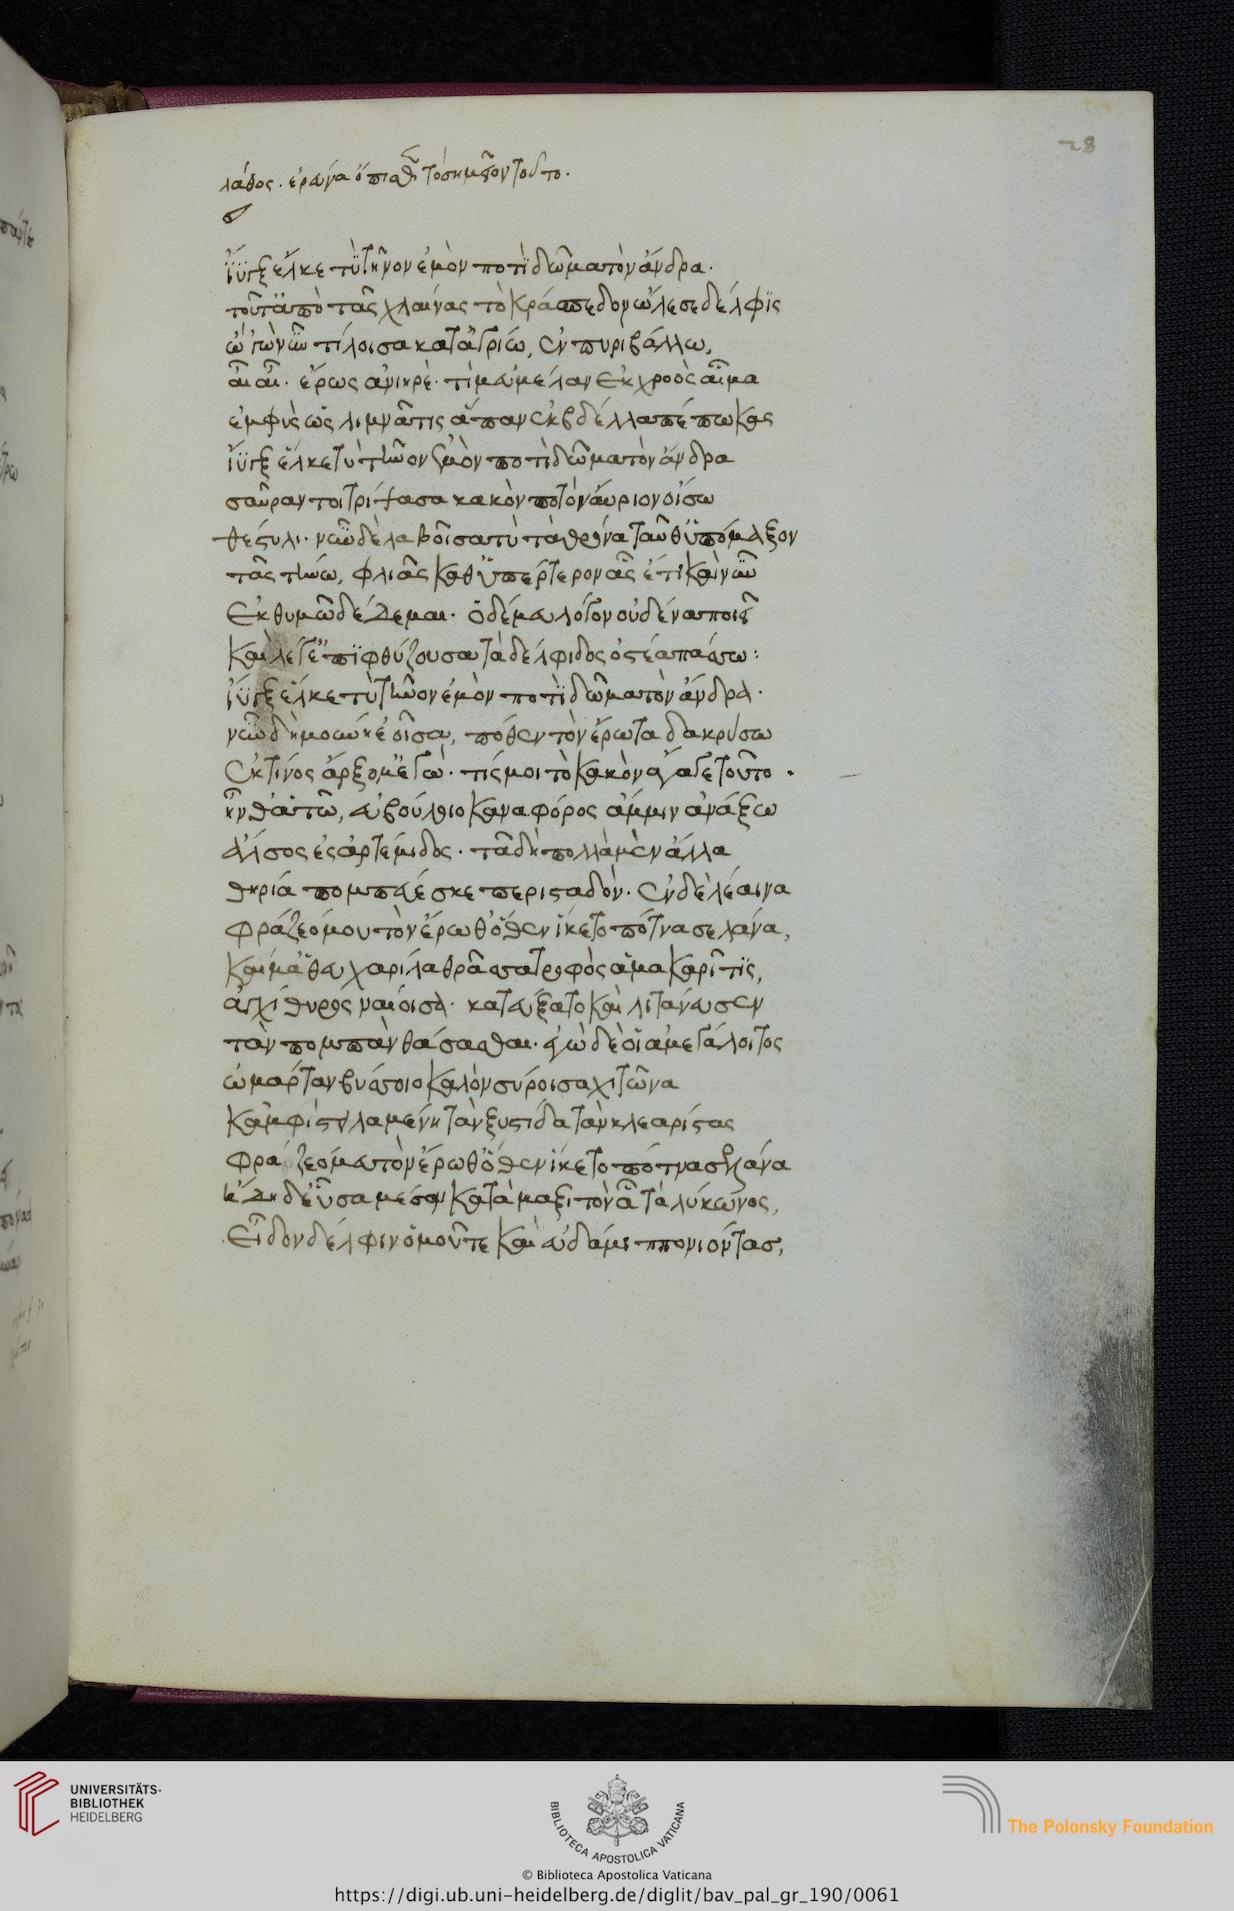 28
λάθος. ἐρωνα ὅπισθεν τὸ σημεῖον τοῦτο.
ἴϋγξ ἕλκε τὺ τῆνον ἐμὸν ποτὶ δῶμα τὸν ἄνδρα.
τοῦτ' ἀπὸ τᾶς χλαίνας τὸ κράσπεδον ὤλεσε δέλφις
ὡ 'γὼ νῦν τίλλοισα κατ' ἀγρίω, ἐν πυρὶ βάλλω,
αἲ αἲ. ἔρως ἀνιηρὲ. τί μευ μέλαν ἐκ χροὸς αἷμα
ἐμφὺς ὡς λιμνᾶτις ἅπαν ἐκ βδέλλα πέπωκας
ἴϋγξ ἕλκε τὺ τῆνον ἐμὸν ποτὶ δῶμα τὸν ἄνδρα
σαῦραν τοι τρίψασα κακὸν ποτὸν αὔριον οἰσῶ
θέστυλι. νῦν δὲ λαβοῖσα τὺ τὰ θρόνα ταῦθ' ὑπόμαξον
τᾶς τήνω, φλιᾶς καθ' ὑπέρτερον ᾶς ἔτι καὶ νῦν
ἐκ θυμῶ δέδεμαι. ὁ δέ μευ λόγον οὐδένα ποιεῖ
καὶ λέγ' ἐπιφθύζουσα τὰ δέλφιδος ὀστέα πάσσω:
ἴϋγξ ἕλκε τὺ τῆνον ἐμὸν ποτὶ δῶμα τὸν ἄνδρα.
νῦν δὴ μούνη ἐοῖσα, πόθεν τὸν ἔρωτα δακρύσω
ἐκ τίνος ἄρξομ' ἐγώ. τίς μοι τὸ κακὸν ἄγαγε τοῦτο.
ἦνθ' ἁ τῶ, εὐβούλοιο καναφόρος ἄμμιν ἀναξὼ
ἄλσος ἐς ἀρτέμιδος. τᾶ δὴ πολλὰ μὲν ἄλλα
θηρία πομπεύεσκε περισταδόν. ἐν δὲ λέαινα
φράζεό μου τὸν ἔρωθ' ὅθεν ἵκετο πότνα σελάνα,
καί μ' ἁ θευχαρίλα θρᾶσσα τροφὸς ἁ μακαρῖτις,
ἀγχίθυρος ναίοισα. κατεύξατο καὶ λιτάνευσεν
τὰν πομπὰν θάσασθαι. ἐγὼ δὲ οἱ ἁ μεγάλοιτος
ὡμάρτευν βυσσοιο καλὸν σύροισα χιτῶνα
κἀμφιστειλαμένη τὰν ξυστίδα τὰν κλεαρίστας
φράζεό μευ τὸν ἔρωθ' ὅθεν ἵκετο πότνα σελάνα
ἤδη δ' εὖσα μέσον κατ' ἁμαξιτὸν ᾇ τὰ λύκωνος,
εἶδον δέλφιν ὁμοῦ τε καὶ εὐδάμιππον ἰόντας,
UNIVERSITÄTS-
BIBLIOTHEK
HEIDELBERG
BIBLIOTECA APOSTOLICA VATICANA
The Polonsky Foundation
© Biblioteca Apostolica Vaticana
https://digi.ub.uni-heidelberg.de/diglit/bav_pal_gr_190/0061